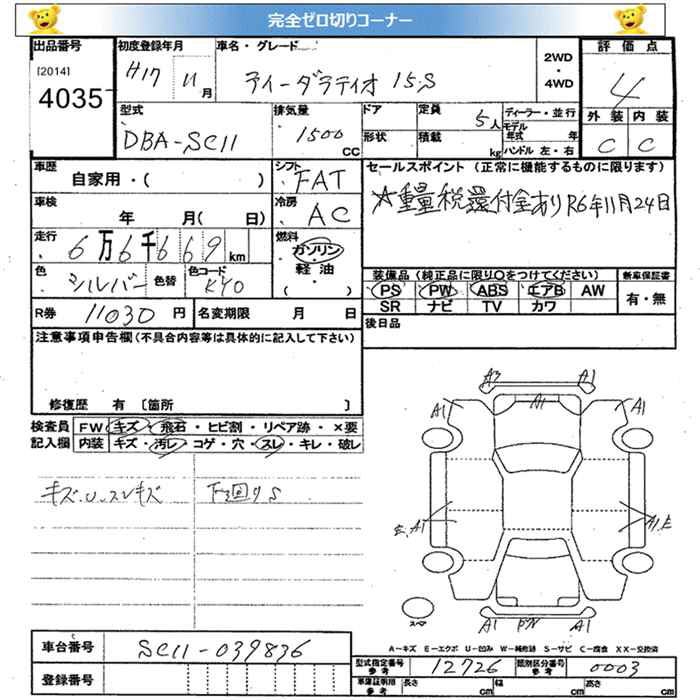 完全ゼロ切りコーナー
出品番号
[2014]
4035
初度登録年月
H17 11月
車名・グレード
ティーダラティオ 15S
2WD
・
4WD
評価点
4
外装 内装
C C
型式
DBA-SC11
排気量
1500 CC
ドア
形状
定員 5人
積載 kg
ディーラー・並行
モデル年式 年
ハンドル 左・右
車歴
自家用・( )
シフト FAT
車検
年 月( 日)
冷房 AC
走行 6万6千669km
燃料
ガソリン
軽油・
( )
色 シルバー 色替
色コード KY0
セールスポイント (正常に機能するものに限ります)
☆重量税還付金あり R6年11月24日
装備品 (純正品に限り○をつけてください)
PS PW ABS エアB AW
SR ナビ TV カワ
新車保証書
有・無
R券 11030円
名変期限 月 日
後日品
注意事項申告欄 (不具合内容等は具体的に記入して下さい)
修復歴 有 〔箇所 〕
検査員記入欄
FW キズ・飛石・ヒビ割・リペア跡・×要
内装 キズ・汚レ・コゲ・穴・スレ・キレ・破レ
キズ.U.スレキズ
下回りS
A3 A1
A1 A1 A1
E.A1 A1.E
A1 A1
スペア
A=キズ E=エクボ U=凹み W=補修跡 S=サビ C=腐食 XX=交換済
車台番号 SC11-039836
登録番号
型式指定番号 参考 12726
類別区分番号 参考 0003
車庫証明用 参考
長さ cm
幅 cm
高さ cm